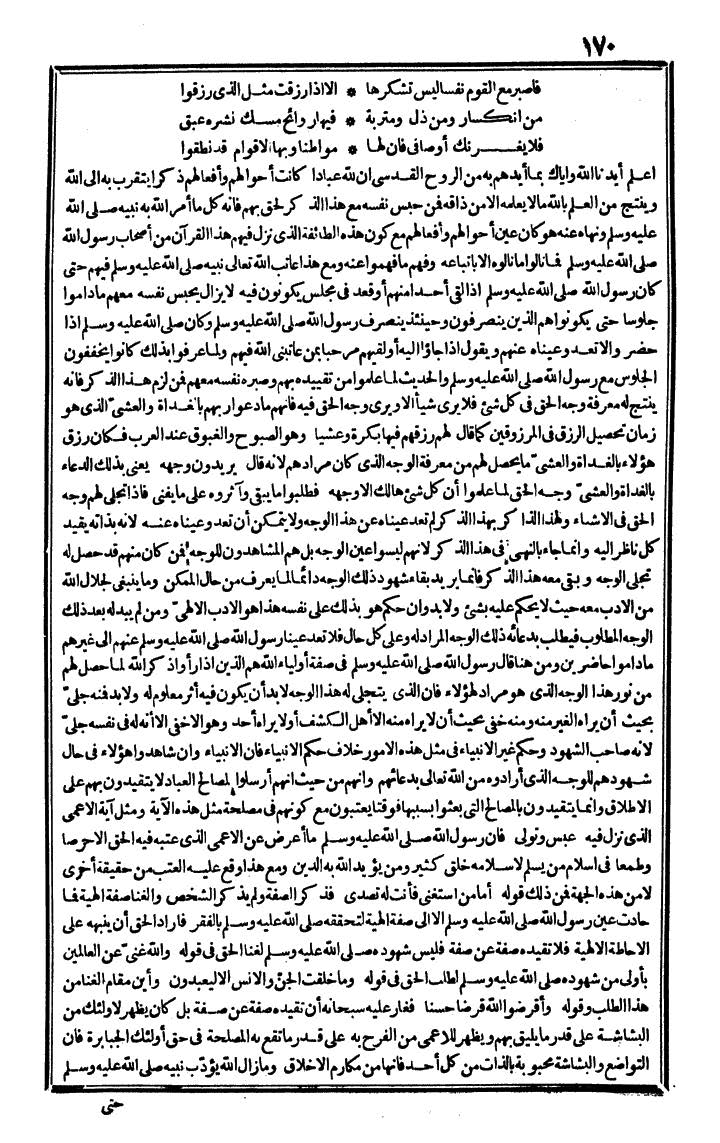 ١٧٠
فاصبر مع القوم نفسا ليس تشكرها * الا اذا رزقت مثل الذى رزقوا
من انكسار ومن ذل ومتربة * فيها روائح مسك نشره عبق
فلا يغرنك أوصافى فان لها * مواطنا وبها الاقوام قد نطقوا
اعلم أيدنا الله واياك بما أيدهم به من الروح القدسى ان لله عبادا كانت أحوالهم وأفعالهم ذكرا يتقرب به الى الله
وينتج من العلم بالله مالا يعلمه الامن ذاقه فمن حبس نفسه مع هذا الذكر لحق بهم فانه كل ما أمر الله به نبيه صلى الله
عليه وسلم ونهاه عنه هو كان عين أحوالهم وأفعالهم مع كون هذه الطائفة الذى نزل فيهم هذا القرآن من أصحاب رسول الله
صلى الله عليه وسلم فما نالوا ما نالوه الا باتباعه وفهم ما فهموا عنه ومع هذا عاتب الله تعالى نبيه صلى الله عليه وسلم فيهم حتى
كان رسول الله صلى الله عليه وسلم اذا لقى أحدا منهم أو قعد فى مجلس يكونون فيه لا يزال يحبس نفسه معهم ماداموا
جلوسا حتى يكونوا هم الذين ينصرفون وحينئذ ينصرف رسول الله صلى الله عليه وسلم وكان صلى الله عليه وسلم اذا
حضر والا تعد وعيناه عنهم ويقول اذا جاؤا اليه أو لقيهم مرحبا بمن عاتبنى الله فيهم ولما عرفوا بذلك كانوا يخففون
الجلوس مع رسول الله صلى الله عليه وسلم والحديث لما علموا من تقييده بهم وصبره نفسه معهم فمن لزم هذا الذكر فانه
ينتج له معرفة وجه الحق فى كل شئ فلا يرى شيأ الا ويرى وجه الحق فيه فانهم ما دعوا ربهم بالغداة والعشىّ الذى هو
زمان تحصيل الرزق فى المرزوقين كما قال لهم رزقهم فيها بكرة وعشيا وهو الصبوح والغبوق عند العرب فكان رزق
هؤلاء بالغداة والعشىّ ما يحصل لهم من معرفة الوجه الذى كان مرادهم لانه قال يريدون وجهه يعنى بذلك الدعاء
بالغداة والعشىّ وجه الحق لما علموا أن كل شئ هالك الا وجهه فطلبوا ما يبقى وآثروه على ما يفنى فاذا تجلى لهم وجه
الحق فى الاشياء ولهذا الذاكر بهذا الذكر لم تعد عيناه عن هذا الوجه ولا يتمكن أن تعد وعيناه عنه لانه بذاته يقيد
كل ناظر اليه وانما جاء بالنهى فى هذا الذكر لانهم ليسوا عين الوجه بل هم المشاهدون للوجه فمن كان منهم قد حصل له
تجلى الوجه وبقى معه هذا الذكر فانما يريد بقاء شهود ذلك الوجه دائما لما يعرف من حال الممكن وما ينبغى لجلال الله
من الادب معه حيث لا يحكم عليه بشئ ولا بد وان حكم هو بذلك على نفسه هذا هو الادب الالهىّ ومن لم يبد له بعد ذلك
الوجه المطلوب فيطلب بدعائه ذلك الوجه المراد له وعلى كل حال فلا تعد عينا رسول الله صلى الله عليه وسلم عنهم الى غيرهم
ماداموا حاضرين ومن هنا قال رسول الله صلى الله عليه وسلم فى صفة أولياء الله هم الذين اذا رأوا ذكر الله لما حصل لهم
من نور هذا الوجه الذى هو مراد لهؤلاء فان الذى يتجلى له هذا الوجه لا بد أن يكون فيه أثر معلوم له ولا بد فنه جلىّ
بحيث أن يراه الغير منه ومنه خفى بحيث أن لا يراه منه الا أهل الكشف أو لا يراه أحد وهو الاخفى الا أنه له فى نفسه جلىّ
لانه صاحب الشهود وحكم غير الانبياء فى مثل هذه الامور خلاف حكم الانبياء فان الانبياء وان شاهدوا هؤلاء فى حال
شهودهم للوجه الذى أرادوه من الله تعالى بدعائهم وانهم من حيث انهم أرسلوا لمصالح العباد لا يتقيدون بهم على
الاطلاق وانما يتقيدون بالمصالح التى بعثوا بسببها فوقتا يعتبون مع كونهم فى مصلحة مثل هذه الآية ومثل آية الاعمى
الذى نزل فيه عبس وتولى فان رسول الله صلى الله عليه وسلم ما أعرض عن الاعمى الذى عتبه فيه الحق الا حرصا
وطمعا فى اسلام من يسلم لاسلامه خلق كثير ومن يؤيد الله به الدين ومع هذا وقع عليه العتب من حقيقة أخرى
لا من هذه الجهة فمن ذلك قوله أما من استغنى فأنت له تصدى فذكر الصفة ولم يذكر الشخص والغنا صفة الهية فما
حادت عين رسول الله صلى الله عليه وسلم الا الى صفة الهية لتحققه صلى الله عليه وسلم بالفقر فاراد الحق أن ينبهه على
الاحاطة الالهية فلا تقيده صفة عن صفة فليس شهوده صلى الله عليه وسلم لغنا الحق فى قوله والله غنىّ عن العالمين
بأولى من شهوده صلى الله عليه وسلم لطلب الحق فى قوله وما خلقت الجنّ والانس الا ليعبدون وأين مقام الغنا من
هذا الطلب وقوله وأقرضوا الله قرضا حسنا فغار عليه سبحانه أن تقيده صفة عن صفة بل كان يظهر لاولئك من
البشاشة على قدر ما يليق بهم ويظهر للاعمى من الفرح به على قدر ما تقع به المصلحة فى حق أولئك الجبابرة فان
التواضع والبشاشة محبوبة بالذات من كل أحد فانها من مكارم الاخلاق ومازال الله يؤدّب نبيه صلى الله عليه وسلم
حتى